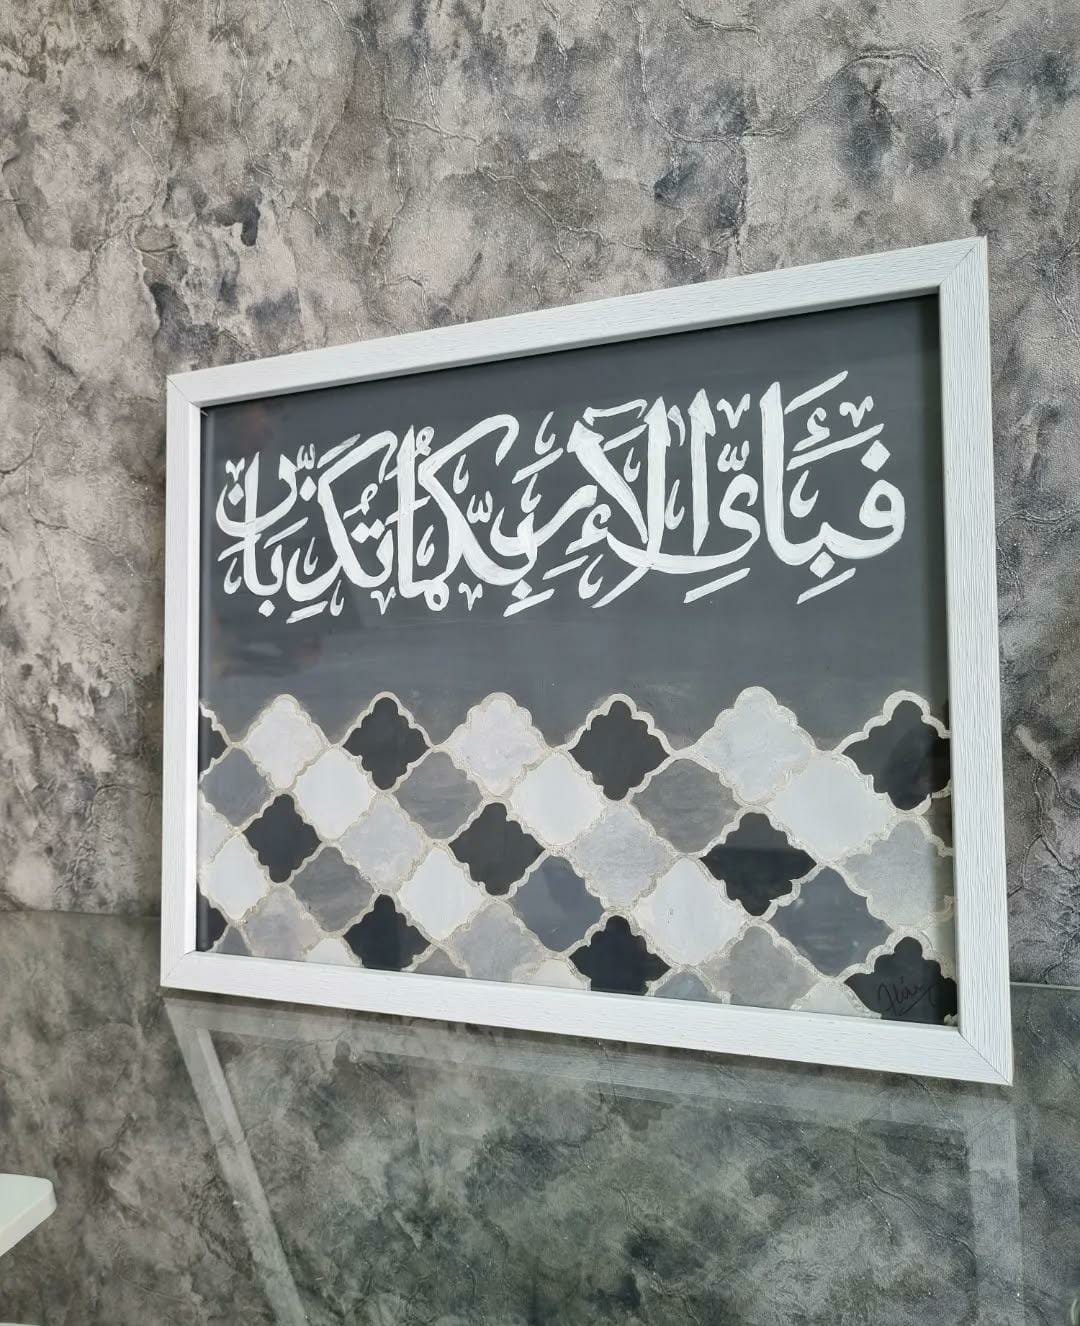 فَبِأَيِّ الَاءِ رَبِّكُمَا تُكَذِّبَانِ